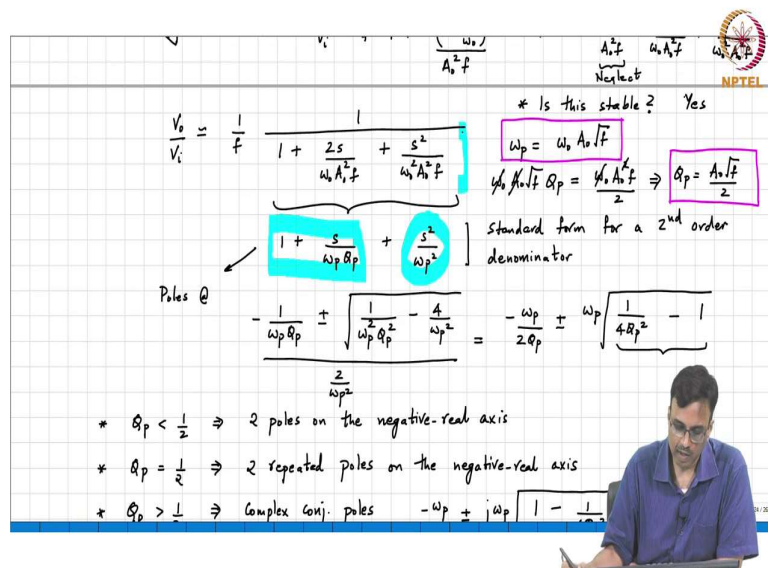 V_i (ω₀) / A₀²f A₀²f ω₀A₀²f ω₀²A₀²f
Neglect
NPTEL
* Is this stable? Yes
V₀/V_i ≃ 1/f 1/(1 + 2s/(ω₀A₀²f) + s²/(ω₀²A₀²f))
ω_p = ω₀ A₀√f
ω₀ A₀√f Q_p = ω₀ A₀² f/2 ⇒ Q_p = A₀√f/2
1 + s/(ω_p Q_p) + s²/ω_p² ] Standard form for a 2nd order
denominator
Poles @
(-1/(ω_p Q_p) ± √(1/(ω_p² Q_p²) - 4/ω_p²))/(2/ω_p²) = -ω_p/(2Q_p) ± ω_p √(1/(4Q_p²) - 1)
* Q_p < 1/2 ⇒ 2 poles on the negative-real axis
* Q_p = 1/2 ⇒ 2 repeated poles on the negative-real axis
* Q_p > 1/2 ⇒ Complex conj. poles -ω_p ± jω_p √(1 - 1/4Q_p²
24 / 26